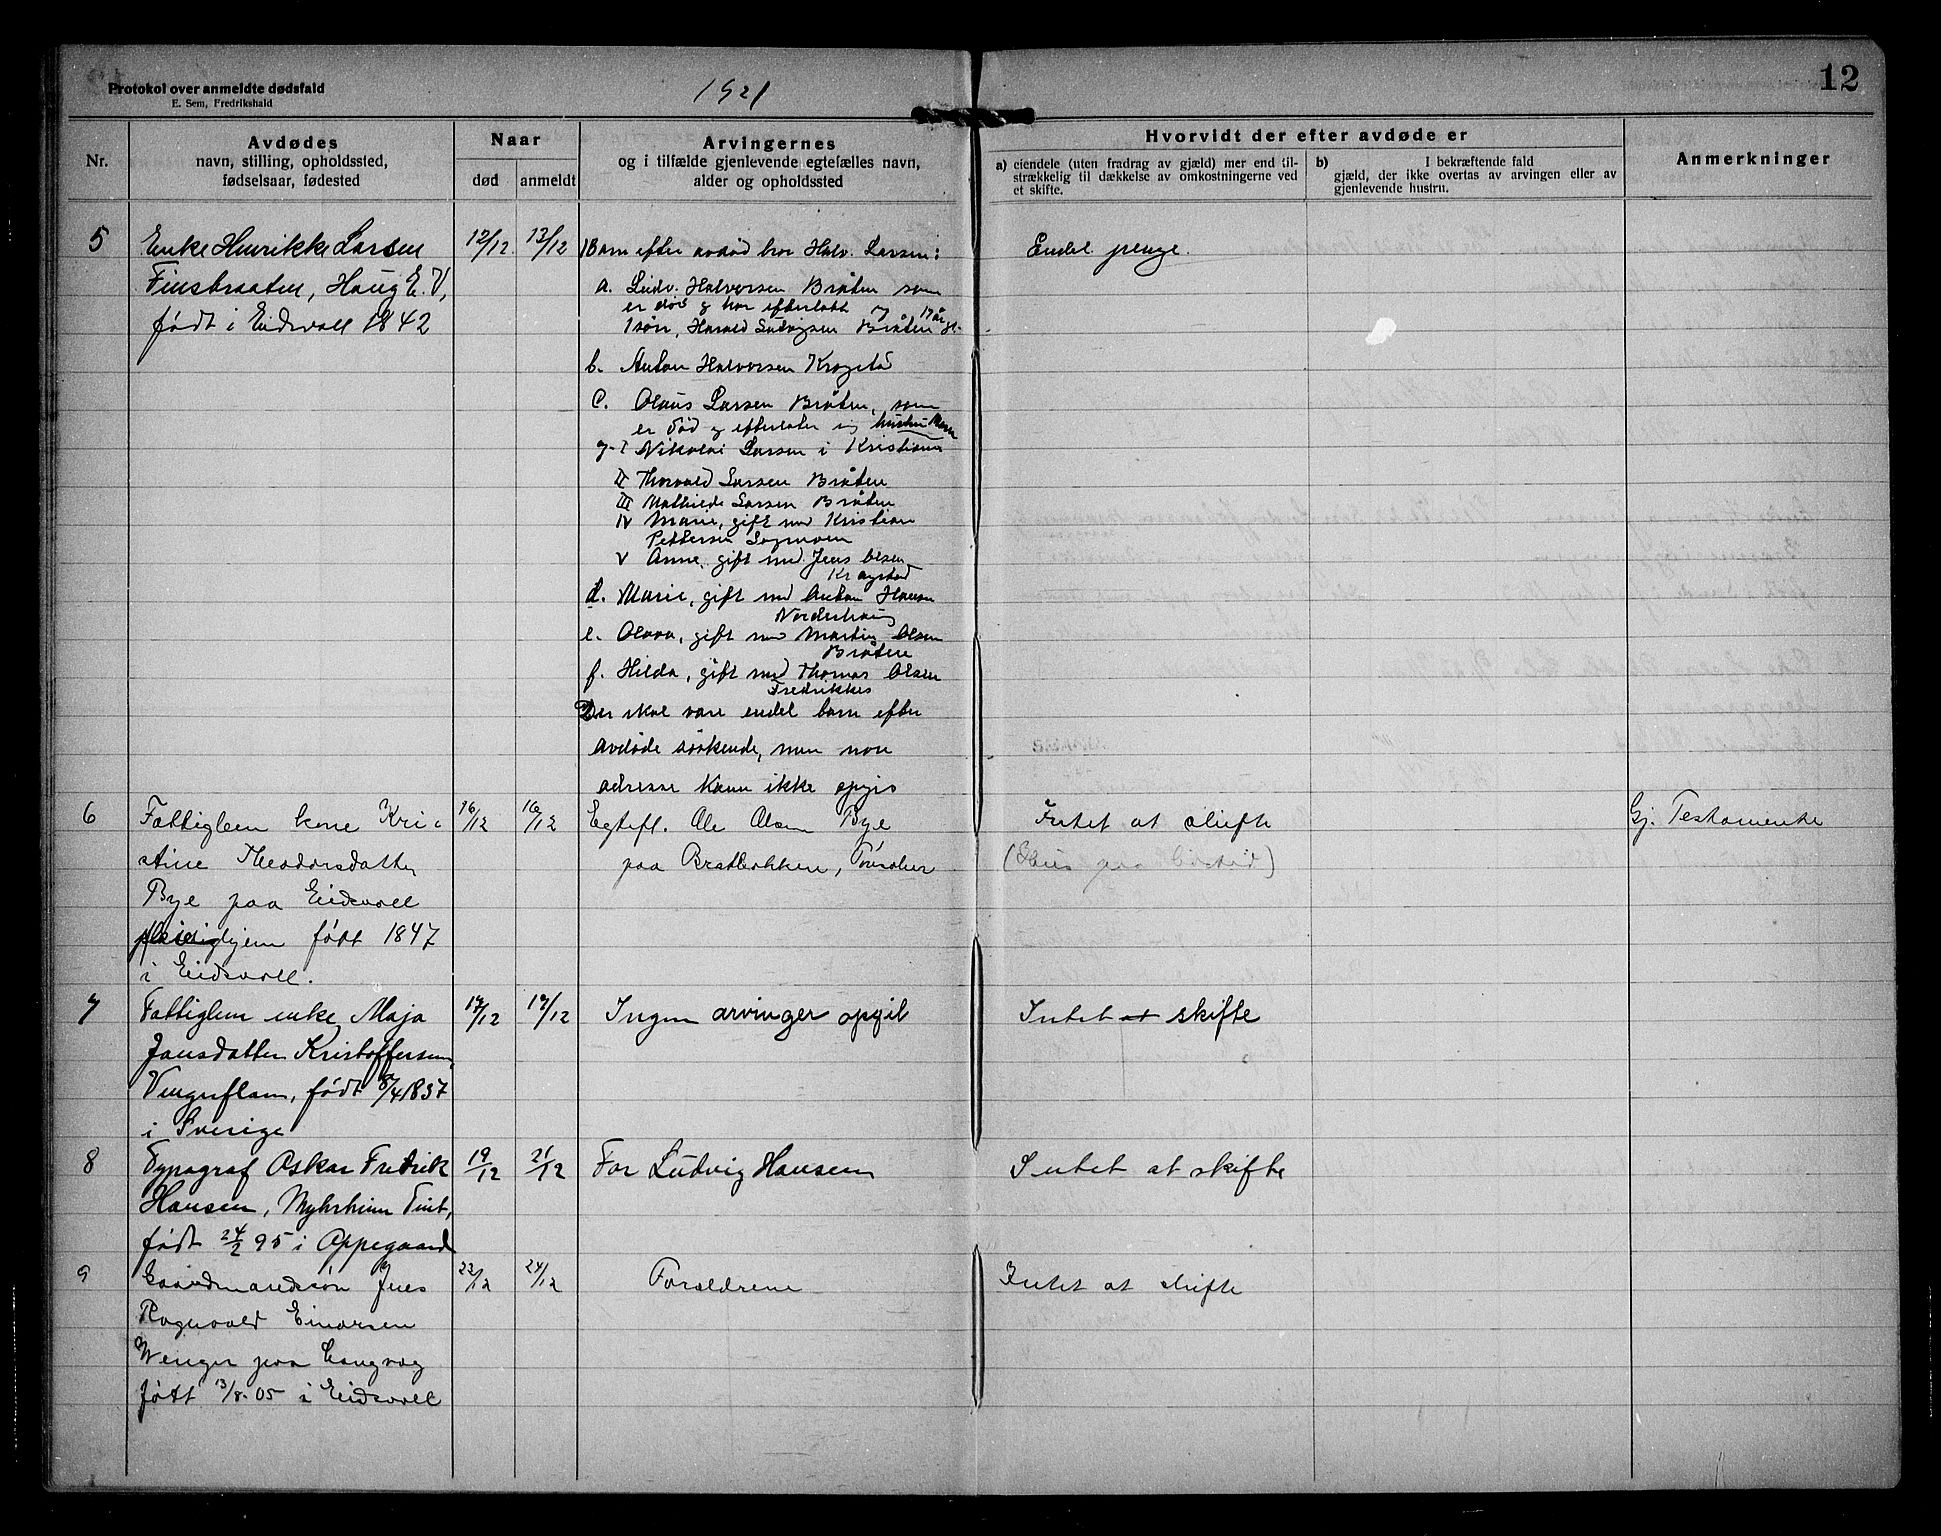 Protokol over anmeldte dødsfald
E. Sem, Fredrikshald
1921
12
Nr.
Avdødes
navn, stilling, opholdssted,
fødselsaar, fødested
Naar
død
anmeldt
Arvingernes
og i tilfælde gjenlevende egtefælles navn,
alder og opholdssted
Hvorvidt der efter avdøde er
a) eiendele (uten fradrag av gjæld) mer end til-
strækkelig til dækkelse av omkostningerne ved
et skifte.
b) I bekræftende fald
gjæld, der ikke overtas av arvingen eller av
gjenlevende hustru.
Anmerkninger
5
Enke Henrikke Larsen
Finsbraaten, Haug E. V,
født i Eidsvoll 1842
12/12
13/12
1 Barn efter avdød bror Halv. Larsen:
a. Ludv. Halvorsen Bråten som
er død og har efterlatt sig
1 søn, Harald Ludvigsen Bråten 17 år
b. Anton Halvorsen Krogstad
c. Olaus Larsen Bråten, som
er død og efterlater sig hustru
og I Nikolai Larsen i Kristiania
II Thorvald Larsen Bråten
III Mathilde Larsen Bråten
IV Marie, gift med Kristian
Pettersen
V Anne, gift med Jens Olsen
Krogstad
d. Marie, gift med Anton Hansen
Nordenhaug
e. Olava, gift med Martin Olsen
Bråten
f. Hilda, gift med Thomas Olsen
Fredrikkes
Der skal være endel barn efter
avdøde søskende, men
adresse kann ikke opgis
Endel penge.
6
Fattiglem kone Kri-
stine Theodorsdatter
Bye paa Eidsvoll
pleiehjem født 1847
i Eidsvoll.
16/12
16/12
Egtef. Ole Olsen Bye
paa Bratbakken,
Intet at skifte
(Hus paa )
Gj. Testamente
7
Fattiglem enke Maja
Jansdatter Kristoffersen,
Vengerflam, født 8/4 1837
i Sverige
17/12
19/12
Ingen arvinger opgit
Intet at skifte
8
Typograf Oskar Fredrik
Hansen, Myhrheim Tint,
født 24/2 95 i Oppegaard
19/12
21/12
Far Ludvig Hansen
Intet at skifte
9
Gaardmandssøn Jens
Ragnvald Einarsen
Wenger paa Langvag
født 13/8-05 i Eidsvoll
22/12
24/12
Forældrene
Intet at skifte